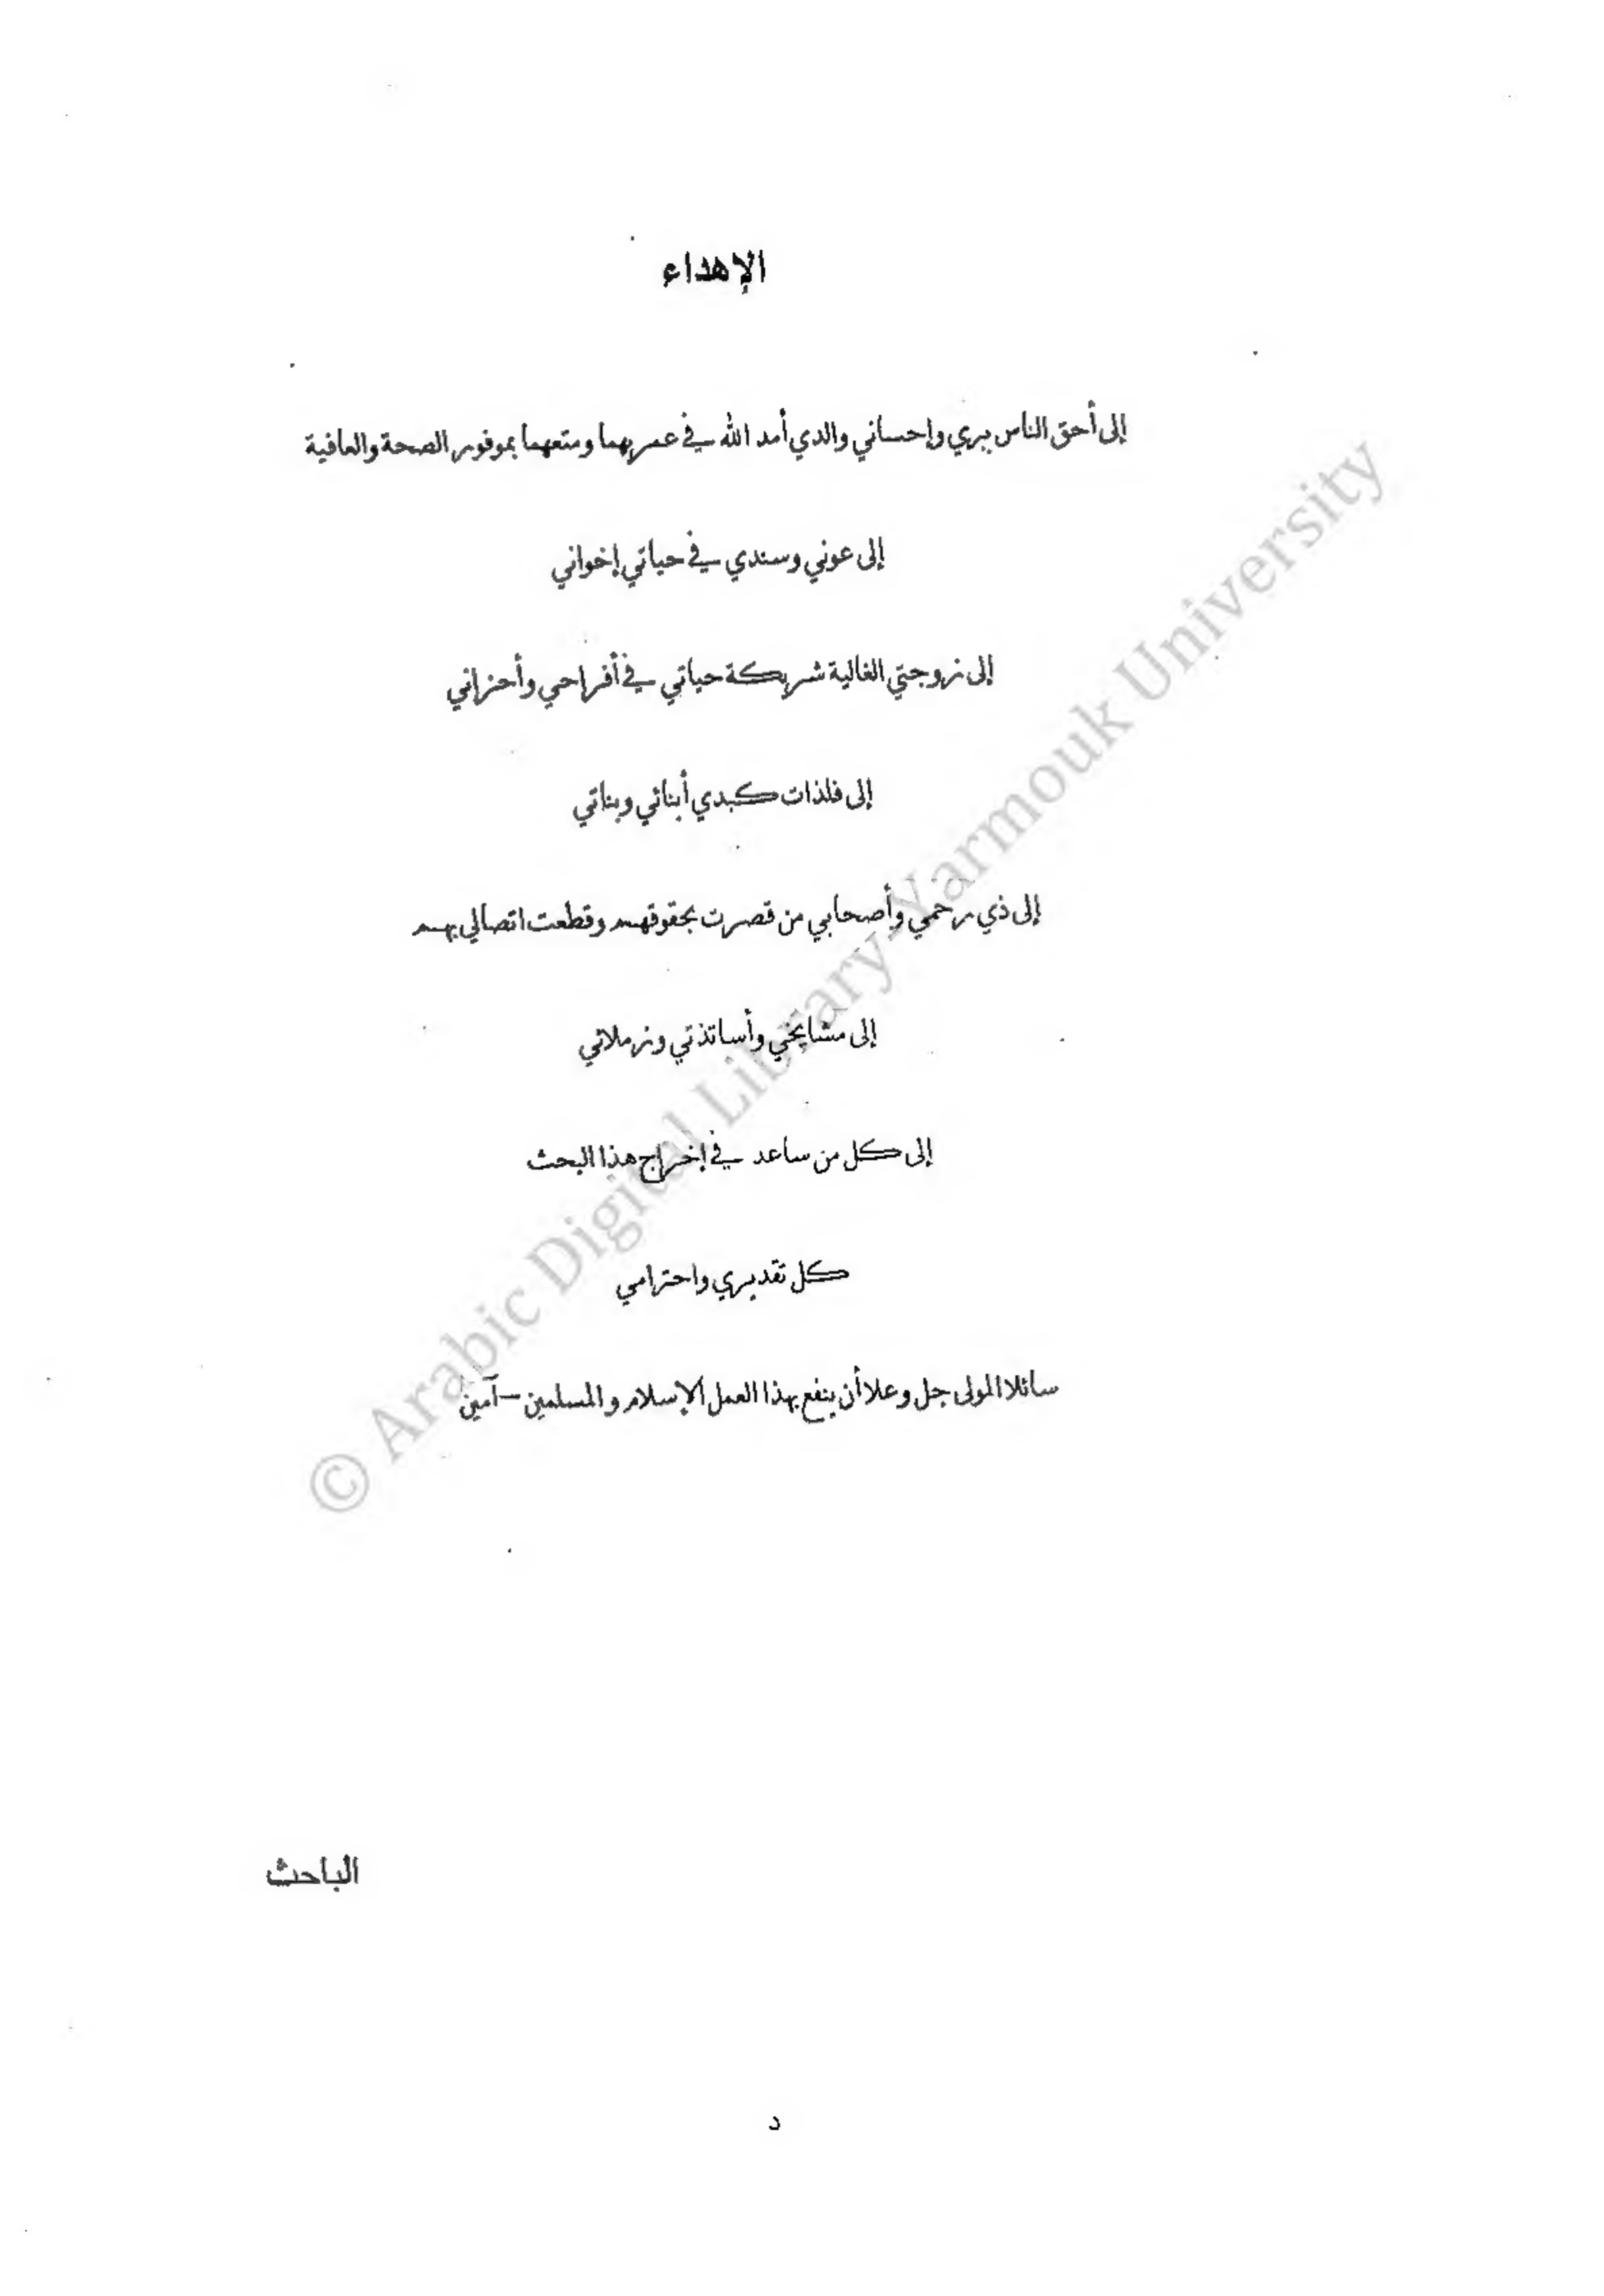 الإهداء
إلى أحق الناس ببري وإحساني والدي أمد الله في عمريهما ومتعهما بموفور الصحة والعافية
إلى عوني وسندي في حياتي إخواني
إلى زوجتي الغالية شريكة حياتي في أفراحي وأحزاني
إلى فلذات كبدي أبنائي وبناتي
إلى ذي رحمي وأصحابي من قصرت بحقوقهم وقطعت اتصالي بهم
إلى مشايخي وأساتذتي وزملائي
إلى كل من ساعد في إخراج هذا البحث
كل تقديري واحترامي
سائلا المولى جل وعلا أن ينفع بهذا العمل الإسلام والمسلمين – آمين
الباحث
د
© Arabic Digital Library-Yarmouk University